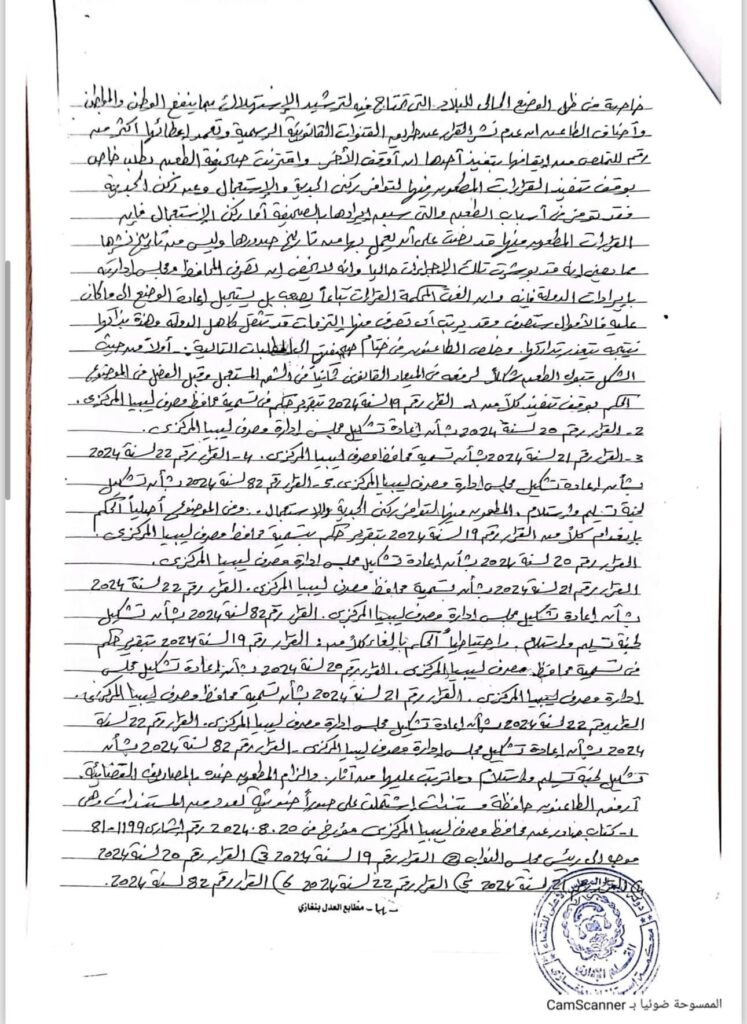 خاصة في ظل الوضع المالي للبلاد التي تحتاج فيه لترشيد الإستهلاك بما ينفع الوطن والمواطن
وأضاف الطاعنين ان عدم نشر القرار عبر القنوات القانونية الرسمية وتعمد إعطائها أكثر من
رقم للتملص من إيقافها بتنفيذ أحدها ان أوقف الأخر. واقترنت صحيفة الطعن بطلب خاص
بوقف تنفيذ القرارات المطعون فيها لتوافر ركني الجدية والإستعجال وعن ركن الجدية
فقد توفر في أسباب الطعن والتي سبق إيرادها بالصحيفة أما ركن الإستعجال فإن
القرارات المطعون فيها قد نصت على أن يعمل بها من تاريخ صدورها وليس من تاريخ نشرها
مما يعني انه قد بوشرت تلك الإجراءات حاليا وانه لا يخفى ان تصرف المحافظ ومجلس ادارته
بإيرادات الدولة فإنه وان الغت المحكمة القرارات تباعاً يصعب بل يستحيل إعادة الوضع الى ماكان
عليه فالأموال ستصرف وقد يرتب أي تصرف منها التزمات قد تثقل كاهل الدولة وهذه بذاتها
نتيجة يتعذر تداركها. وخلص الطاعنون في ختام صحيفتهم الى الطلبات التالية:- أولاً من حيث
الشكل بقبول الطعن شكلاً لرفعه في الميعاد القانوني ثانياً في الشق المستعجل وقبل الفصل في الموضوع
الحكم بوقف تنفيذ كلاً من 1- القرار رقم 19 لسنة 2024 بتقرير حكم في تسمية محافظ مصرف ليبيا المركزي.
2- القرار رقم 20 لسنة 2024 بشأن إعادة تشكيل مجلس ادارة مصرف ليبيا المركزي.
3- القرار رقم 21 لسنة 2024 بشأن تسمية محافظ مصرف ليبيا المركزي. 4- القرار رقم 22 لسنة 2024
بشأن إعادة تشكيل مجلس ادارة مصرف ليبيا المركزي 5- القرار رقم 82 لسنة 2024 بشأن تشكيل
لجنة تسليم واستلام. المطعون فيها لتوافر ركني الجدية والاستعجال.. وفي الموضوع أصلياً الحكم
بإنعدام كلاً من القرار رقم 19 لسنة 2024 بتقرير حكم بتسمية محافظ مصرف ليبيا المركزي.
القرار رقم 20 لسنة 2024 بشأن إعادة تشكيل مجلس ادارة مصرف ليبيا المركزي.
القرار رقم 21 لسنة 2024 بشأن تسمية محافظ مصرف ليبيا المركزي. القرار رقم 22 لسنة 2024
بشأن إعادة تشكيل مجلس ادارة مصرف ليبيا المركزي. القرار رقم 82 لسنة 2024 بشأن تشكيل
لجنة تسليم واستلام. واحتياطياً الحكم بإلغاء كلاً من: القرار رقم 19 لسنة 2024 بتقرير حكم
في تسمية محافظ مصرف ليبيا المركزي. القرار رقم 20 لسنة 2024 بشأن إعادة تشكيل مجلس
ادارة مصرف ليبيا المركزي. القرار رقم 21 لسنة 2024 بشأن تسمية محافظ مصرف ليبيا المركزي.
القرار رقم 22 لسنة 2024 بشأن إعادة تشكيل مجلس ادارة مصرف ليبيا المركزي. القرار رقم 22 لسنة
2024 بشأن إعادة تشكيل مجلس ادارة مصرف ليبيا المركزي. القرار رقم 82 لسنة 2024 بشأن
تشكيل لجنة تسليم واستلام وما ترتب عليها من آثار. والزام المطعون ضده بالمصاريف القضائية.
أرفق الطاعنون حافظة مستندات إشتملت على صوراً ضوئية لعدد من المستندات وهي
1- كتاب صادر عن محافظ مصرف ليبيا المركزي مؤرخ في 20.8.2024 رقم إشاري 1199-81
موجه الى رئيس مجلس النواب 2) القرار رقم 19 لسنة 2024 3) القرار رقم 20 لسنة 2024
4) القرار رقم 21 لسنة 2024 5) القرار رقم 22 لسنة 2024 6) القرار رقم 82 لسنة 2024.
مطابع العدل بنغازي
الممسوحة ضوئيا بـ CamScanner